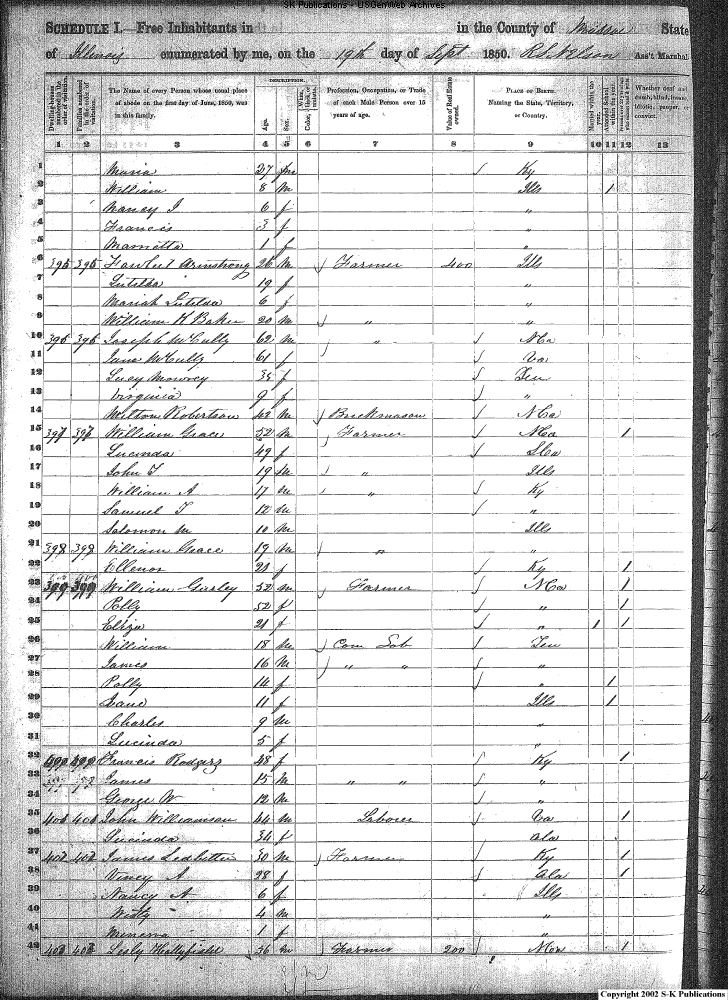 SK Publications - USGenWeb Archives
SCHEDULE I.—Free Inhabitants in in the County of State
of Illinois enumerated by me, on the 19th day of Sept 1850. R S Nelson Ass't Marshal.
DESCRIPTION.
Dwelling-houses numbered in the order of visitation. Families numbered in the order of visitation. The Name of every Person whose usual place of abode on the first day of June, 1850, was in this family. Age. Sex. Color, White, black, or mulatto. Profession, Occupation, or Trade of each Male Person over 15 years of age. Value of Real Estate owned. PLACE OF BIRTH. Naming the State, Territory, or Country. Married within the year. Attended School within the year. Whether deaf and dumb, blind, insane, idiotic, pauper, or convict.
1 2 3 4 5 6 7 8 9 10 11 12 13
1 Maria 27 fm Ky
2 William 8 m Ills 1
3 Nancy J 6 f "
4 Francis 3 f "
5 Marrietta 1 f "
6 395 395 Armstrong 26 m Farmer 400 Ills
7 19 f "
8 Mariah 6 f "
9 William K Baker 20 m " "
10 396 396 Joseph McCully 62 m " N Ca
11 Jane McCully 61 f Va
12 Lucy 35 f Ten
13 Virginia 9 f "
14 Milton Robertson 42 m Brickmason N Ca
15 397 397 William Grace 52 m Farmer N Ca 1
16 Lucinda 49 f S Ca
17 John T 19 m " Ills
18 William A 17 m " Ky
19 Samuel T 12 m "
20 Solomon M 10 m Ills
21 398 398 William Grace 19 m " "
22 Ellenor 21 f Ky 1
23 399 399 William 52 m Farmer N Ca 1
24 Polly 52 f " 1
25 Eliza 21 f " 1 1
26 William 18 m Com Lab Ten
27 James 16 m " " "
28 Polly 14 f " 1
29 Jane 11 f Ills 1
30 Charles 9 m "
31 Lucinda 5 f "
32 Francis Rodgers 48 f Ky 1
33 James 15 m " " "
34 George W 12 m "
35 401 401 John Williamson 44 m Laborer Va 1
36 Lucinda 34 f Ala
37 402 402 James Ledbetter 30 m Farmer Ky 1
38 Viney A 28 f Ala 1
39 Nancy A 6 f Ills
40 4 m "
41 Minerva 1 f "
42 403 403 36 m Farmer 200 1
Copyright 2002 S-K Publications